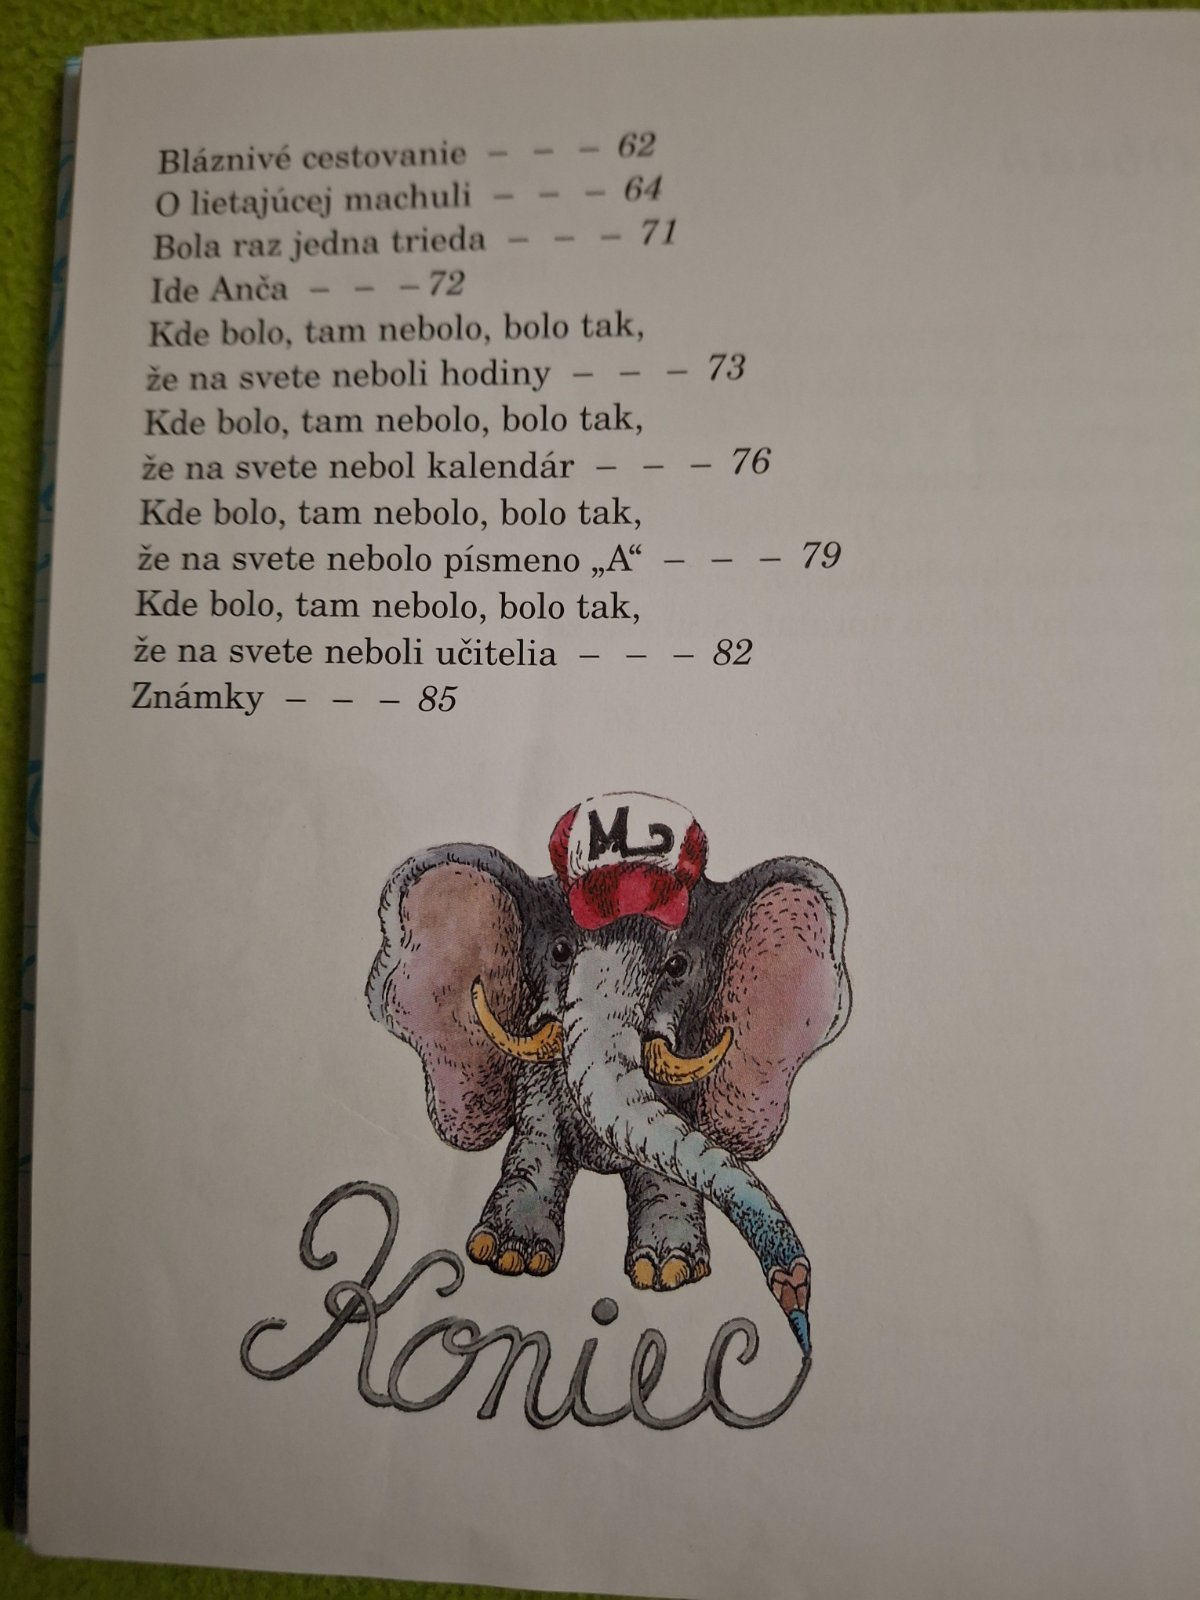 Bláznivé cestovanie – – – 62
O lietajúcej machuli – – – 64
Bola raz jedna trieda – – – 71
Ide Anča – – – 72
Kde bolo, tam nebolo, bolo tak,
že na svete neboli hodiny – – – 73
Kde bolo, tam nebolo, bolo tak,
že na svete nebol kalendár – – – 76
Kde bolo, tam nebolo, bolo tak,
že na svete nebolo písmeno „A“ – – – 79
Kde bolo, tam nebolo, bolo tak,
že na svete neboli učitelia – – – 82
Známky – – – 85
Koniec